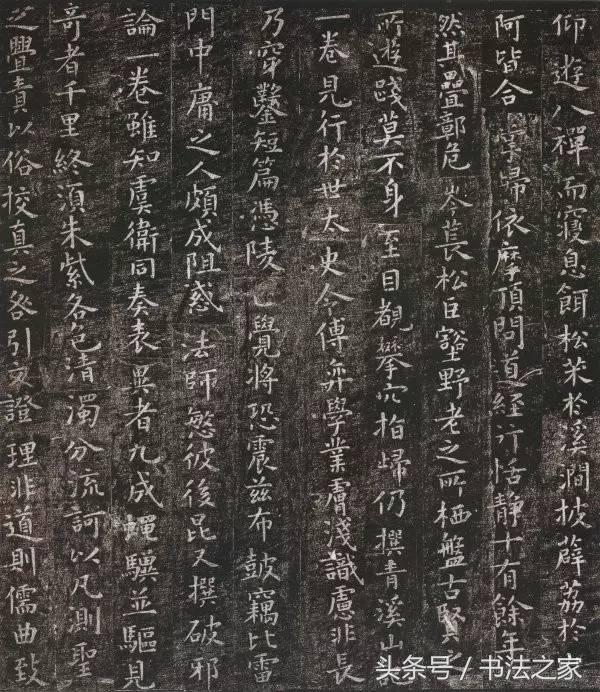 仰遊八禪而寢息餌松朮於溪澗披薜荔於
阿皆合掌歸依摩頂問道經行恬靜十有餘年
然其疊鄣危岑萇松巨壑野老之所栖盤古賢之
所遊踐莫不身至目覩攀穴指歸仍撰青溪山記
一卷見行於世太史令傅弈學業膚淺識慮非長
乃穿鑿短篇憑陵正覺將恐震茲布鼓竊比雷
門中庸之人頗成阻惑法師愍彼後昆又撰破邪
論一卷雖知虞衛同奏表異者九成蠅驥並驅見
奇者千里終須朱紫各色清濁分流訶以凡測聖
之釁責以俗挍真之咎引文證理非道則儒曲致
头条号 / 书法之家